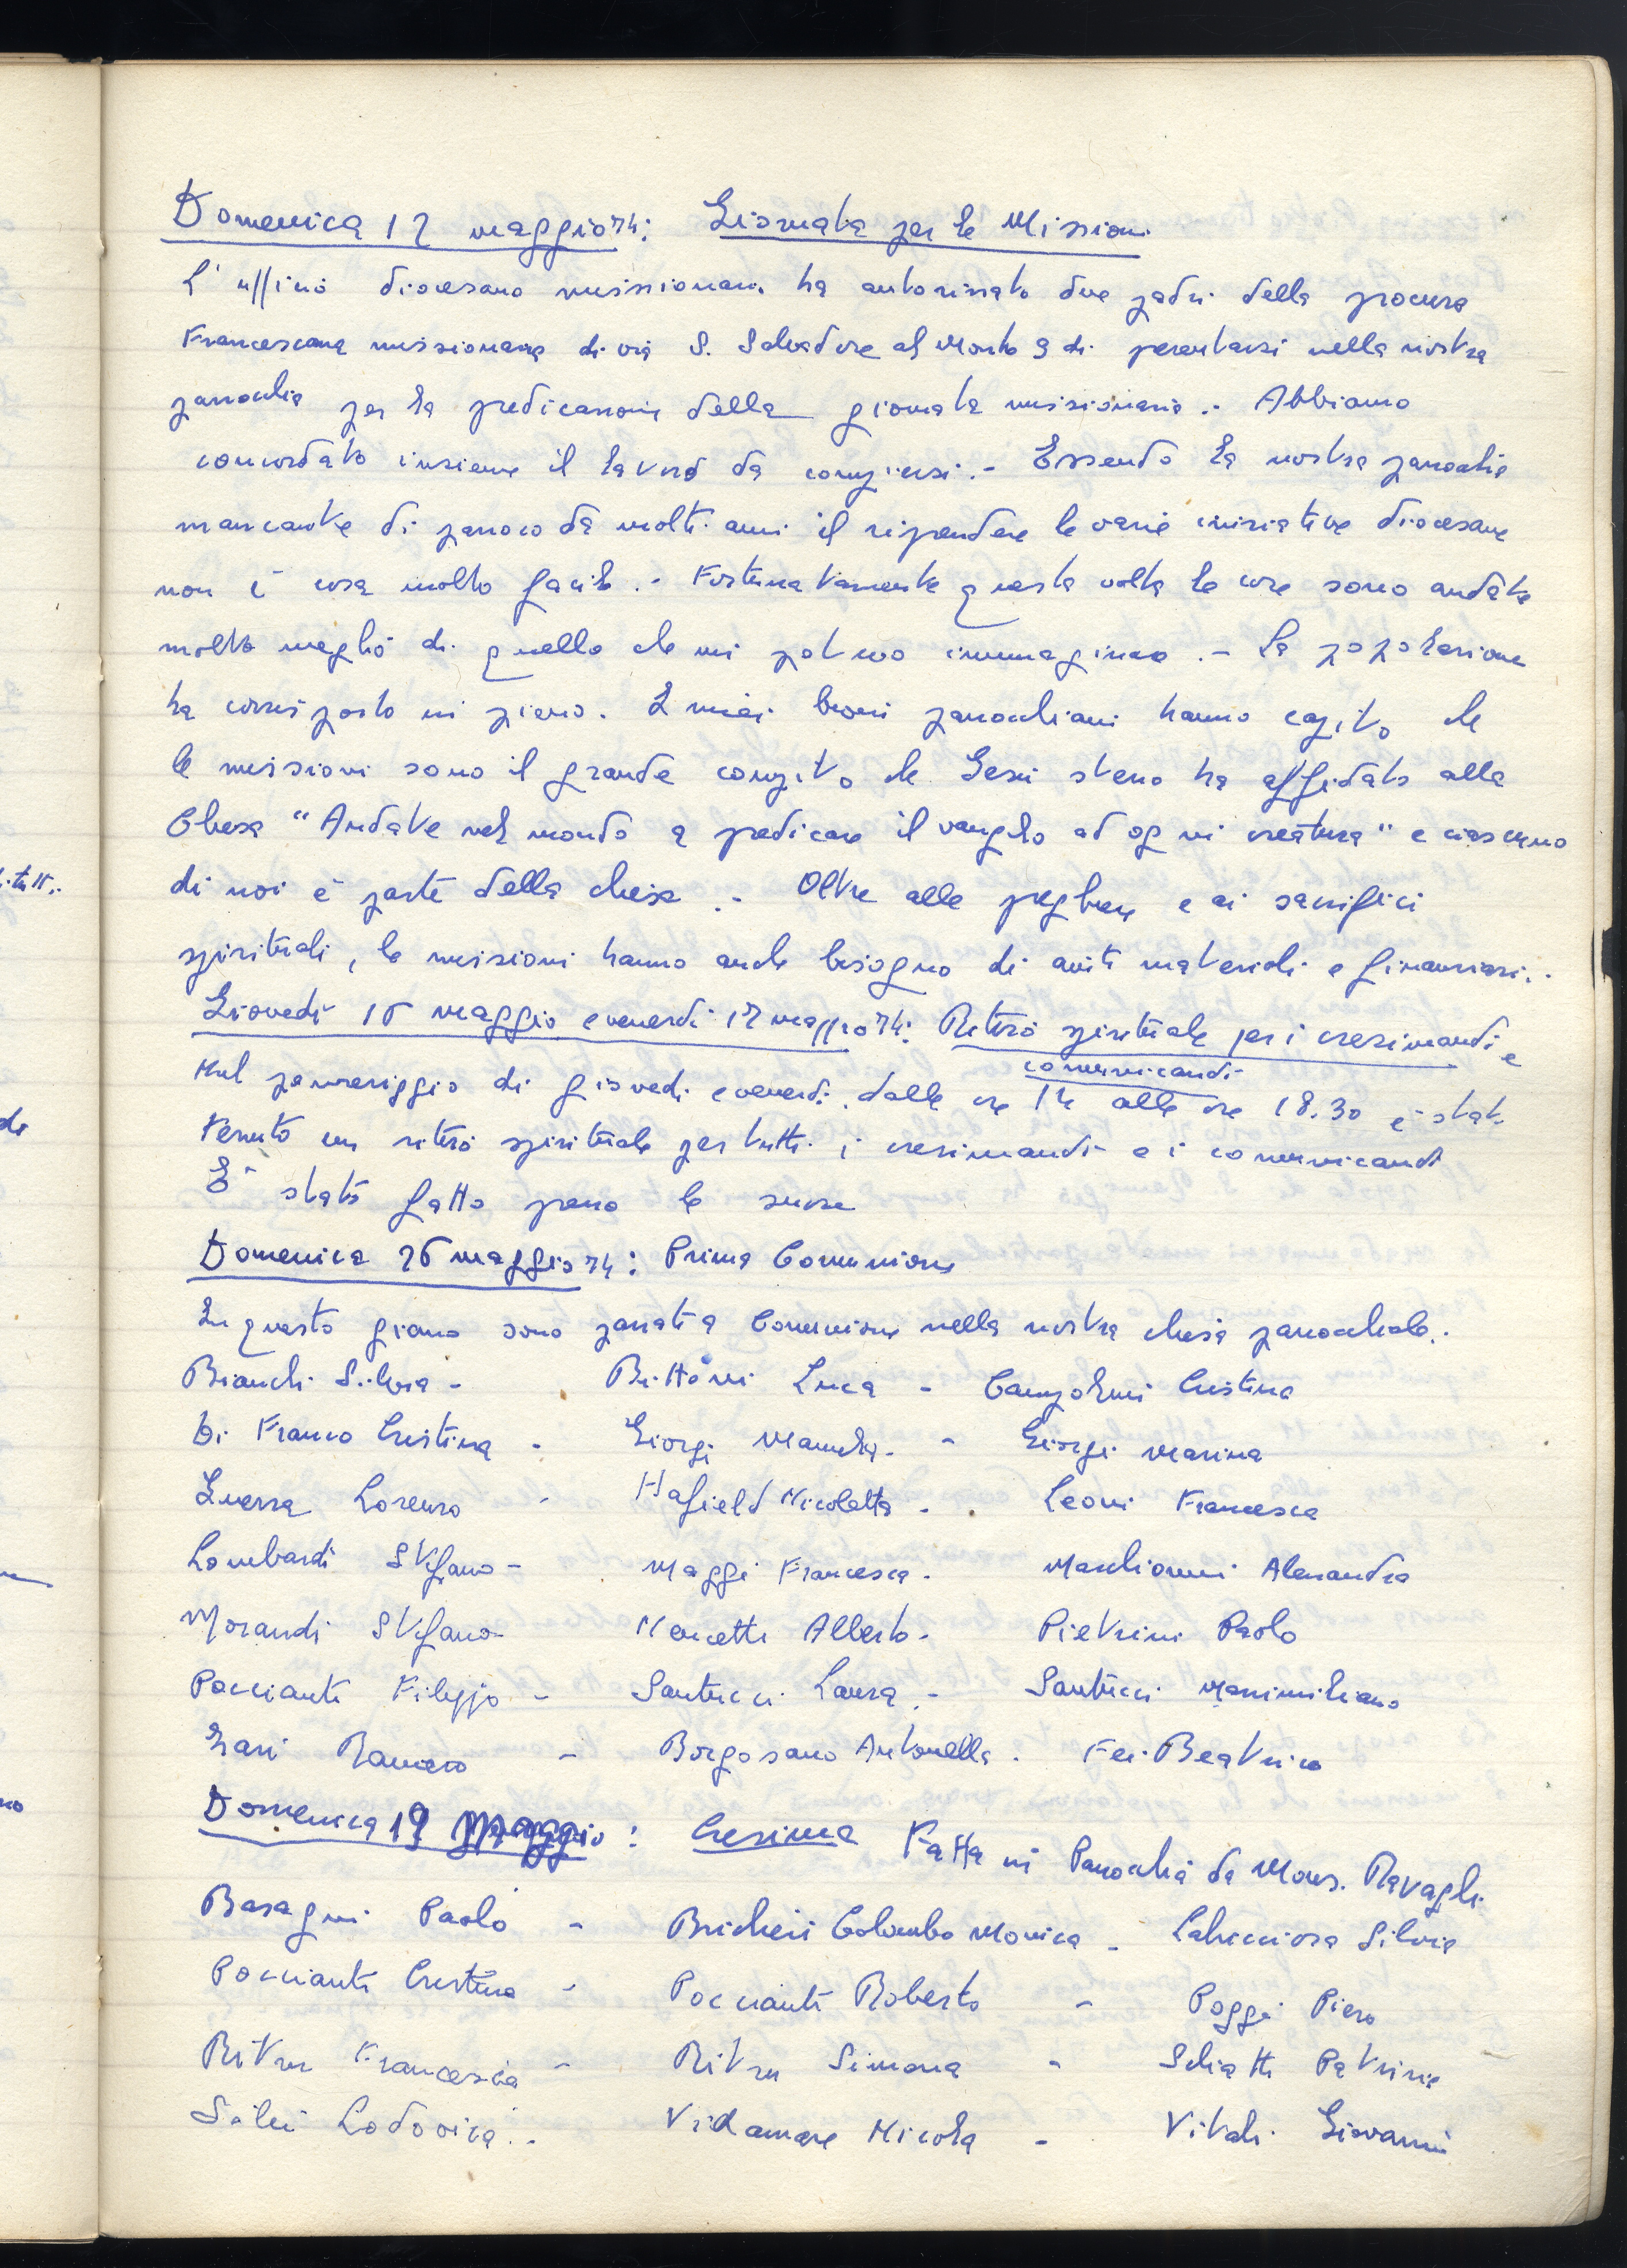 Domenica 12 maggio 74: Giornata per le Missioni
L'ufficio diocesano missionario ha autorizzato due padri della procura
Francescana missionaria di via S. Salvatore al Monte 9 di presentarsi nella nostra
parrocchia per la predicazione della giornata missionaria.- Abbiamo
concordato insieme il lavoro da compiersi.- Essendo la nostra parrocchia
mancante di parroco da molti anni il riprendere le varie iniziative diocesane
non è cosa molto facile.- Fortunatamente questa volta le cose sono andate
molto meglio di quello che mi potevo immaginare.- La popolazione
ha corrisposto in pieno. I miei buoni parrocchiani hanno capito che
le missioni sono il grande compito che Gesù stesso ha affidato alla
Chiesa "Andate nel mondo a predicare il vangelo ad ogni creatura" e ciascuno
di noi è parte della chiesa.- Oltre alle preghiere e ai sacrifici
spirituali, le missioni hanno anche bisogno di aiuti materiali e finanziari..
Giovedì 16 maggio e venerdì 17 maggio 74: Ritiro spirituale per i cresimandi e
comunicandi
Nel pomeriggio di giovedì e venerdì dalle ore 14 alle ore 18.30 è stato
tenuto un ritiro spirituale per tutti i cresimandi e i comunicandi
E' stato fatto presso le suore
Domenica 26 maggio 74: Prima Comunione
In questo giorno sono passati a Comunione nella nostra chiesa parrocchiale..
Bianchi Silvia - Bittoni Luca - Campolmi Cristina
Di Franco Cristina - Giorgi Manuela - Giorgi Marina
Guerra Lorenzo - Hafield Nicoletta - Leoni Francesca
Lombardi Stefano - Maggi Francesca - Marchionni Alessandra
Morandi Stefano Nencetti Alberto - Pietrini Paolo
Poccianti Filippo - Santucci Laura - Santucci Massimiliano
Raniero - Borgosano Antonella - Fei Beatrice
Domenica 19 Maggio: Cresima Fatta in Parrocchia da Mons. Ravagli
Basagni Paolo - Bricheri Colombo Monica - Silvia
Poccianti Cristina - Poccianti Roberto - Poggi Piero
Francesca - Simona - Schiatti Patrizia
Lodovica.- Nicola - Vitali Giovanni